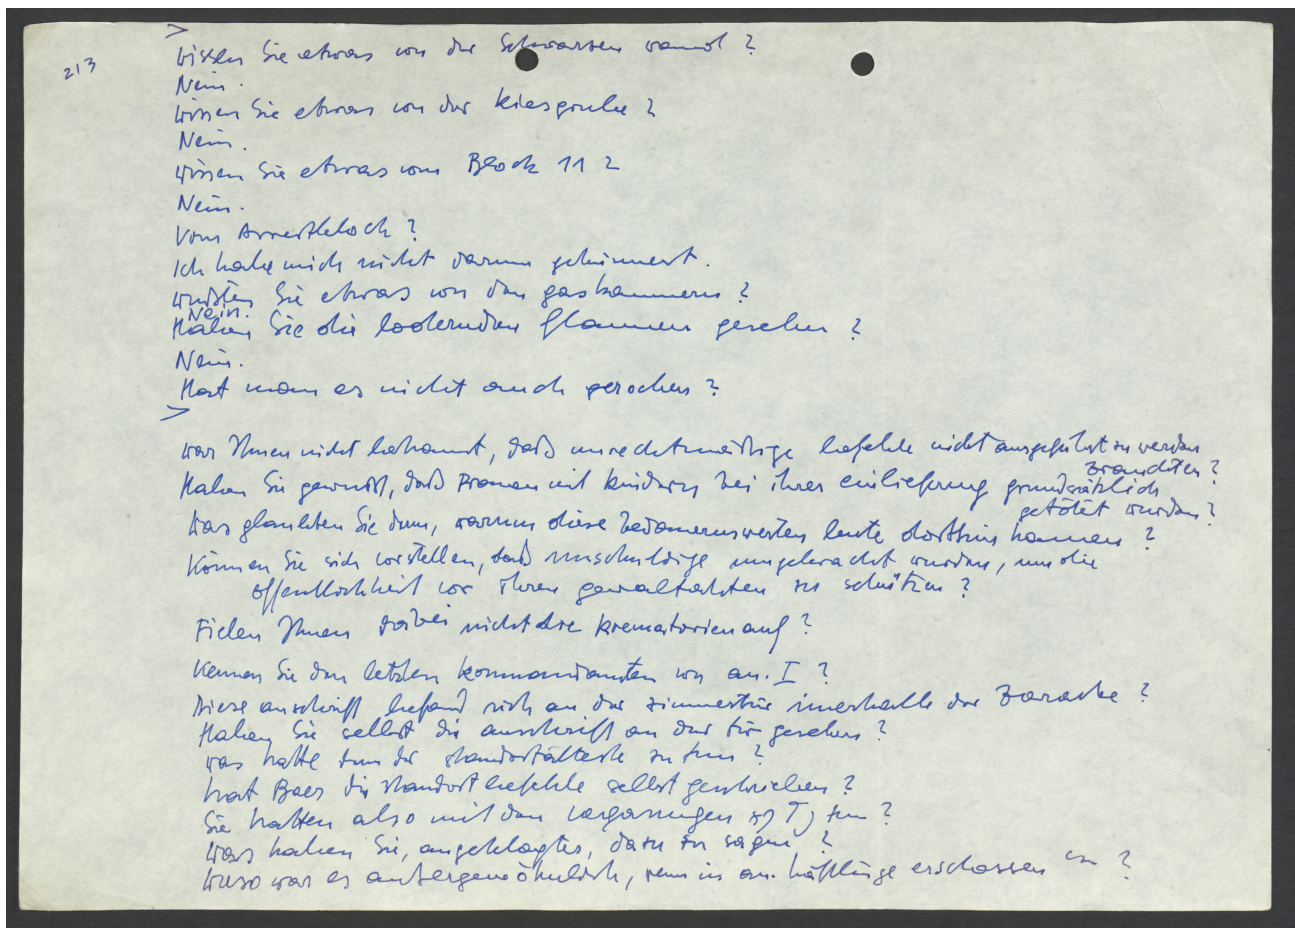 213
>
wissen Sie etwas von der Schwarzen wand?
Nein.
wissen Sie etwas von der kiesgrube?
Nein.
wissen Sie etwas vom Block 11?
Nein.
Vom Arrestblock?
Ich habe mich nicht darum gekümmert.
wußten Sie etwas von den gaskammern?
Nein.
Haben Sie die lodernden flammen gesehen?
Nein.
Hat man es nicht auch gerochen?
>
war Ihnen nicht bekannt, daß unrechtmäßige befehle nicht ausgeführt zu werden
brauchten?
Haben Sie gewußt, daß Frauen mit kindern bei ihrer einlieferung grundsätzlich
getötet wurden?
was glaubten Sie denn, warum diese bedauernswerten leute dorthin kamen?
können Sie sich vorstellen, daß unschuldige umgebracht wurden, um die
öffentlichkeit vor ihren gewalttaten zu schützen?
Fielen Ihnen dabei nicht die krematorien auf?
kennen Sie den letzten kommandanten von au. I?
Diese anschrift befand sich an der zimmertür innerhalb der Baracke?
Haben Sie selbst die anschrift an der tür gesehen?
was hatte denn der standortälteste zu tun?
hat Baer die standortbefehle selbst geschrieben?
Sie hatten also mit den vergasungen zu tun?
was haben Sie, angeklagter, dazu zu sagen?
wieso war es außergewöhnlich, wenn in au. häftlinge erschossen ?